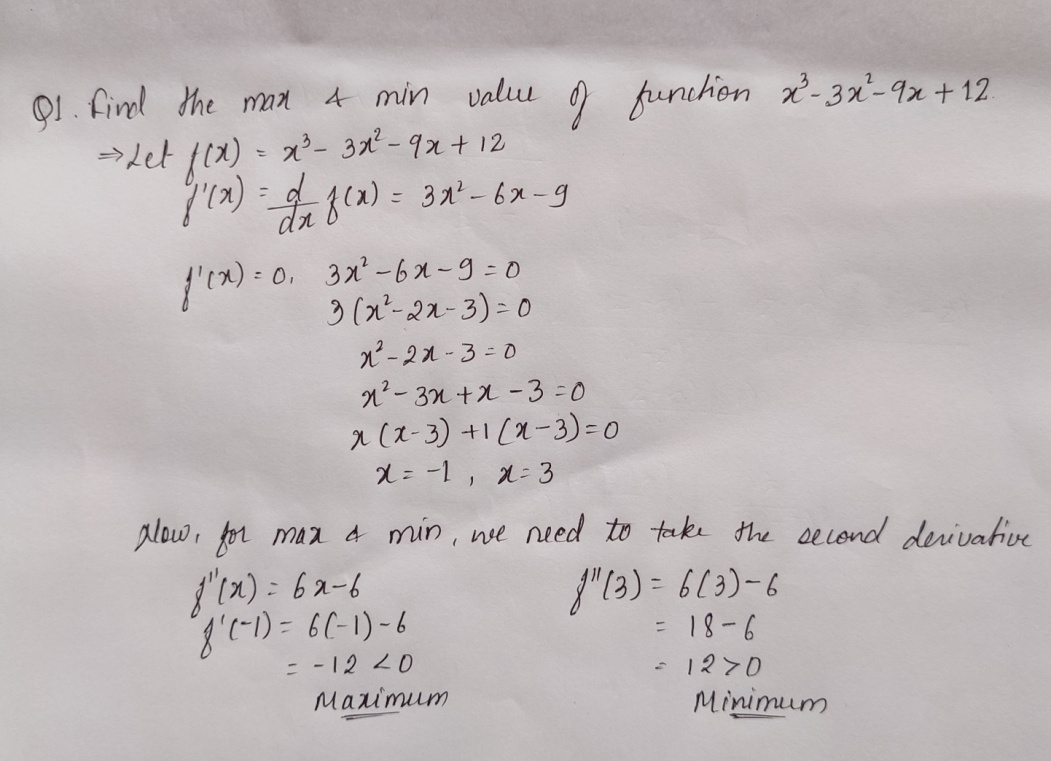 Q1. Find the max & min value of function x³-3x²-9x+12.
⇒ Let f(x) = x³-3x²-9x+12
f'(x) = d/dx f(x) = 3x²-6x-9
f'(x)=0, 3x²-6x-9=0
3(x²-2x-3)=0
x²-2x-3=0
x²-3x+x-3=0
x(x-3)+1(x-3)=0
x=-1, x=3
Now, for max & min, we need to take the second derivative
f"(x) = 6x-6 f"(3) = 6(3)-6
f'(-1) = 6(-1)-6 = 18-6
= -12<0 = 12>0
Maximum Minimum